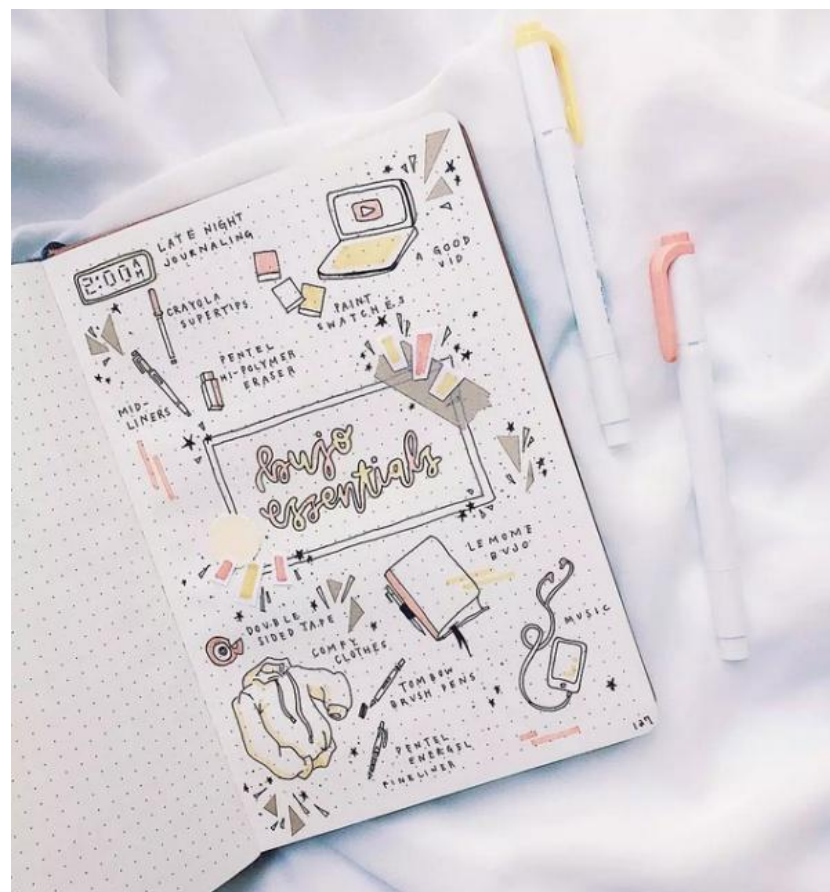 LATE NIGHT
JOURNALING
2:00AM
A GOOD
VID
CRAYOLA
SUPERTIPS
PAINT
SWATCHES
PENTEL
HI-POLYMER
ERASER
MID-
LINERS
bujo
essentials
LEMOME
BUJO
DOUBLE
SIDED TAPE
COMFY
CLOTHES
MUSIC
TOMBOW
BRUSH PENS
PENTEL
ENERGEL
FINELINER
127